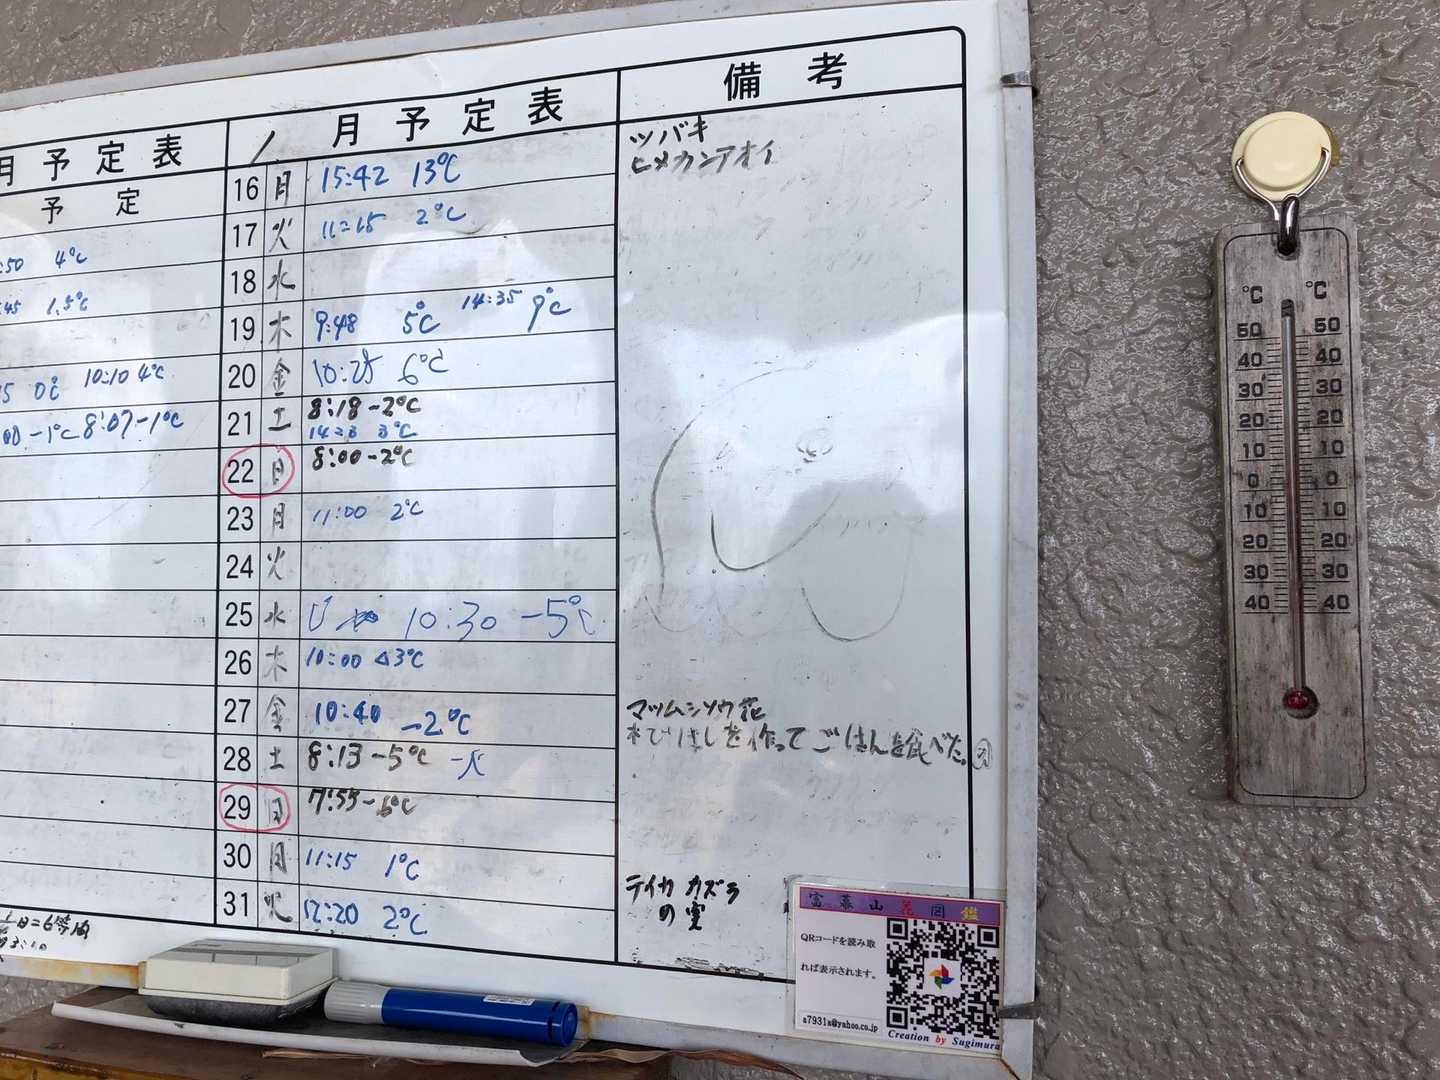 月予定表
予定
:50 4℃
:45 1.5℃
5 0℃ 10:10 4℃
:00 -1℃ 8:07 -1℃
1月予定表
16 月 15:42 13℃
17 火 11:15 2℃
18 水
19 木 9:48 5℃ 14:35 9℃
20 金 10:25 6℃
21 土 8:18 -2℃
3℃
22 日 8:00 -2℃
23 月 11:00 2℃
24 火
25 水 10:30 -5℃
26 木 10:00 △3℃
27 金 10:40 -2℃
28 土 8:13 -5℃
29 日 7:55 -6℃
30 月 11:15 1℃
31 火 12:20 2℃
備考
ツバキ
ヒメカンアオイ
マツムシソウ花
木ではしを作ってごはんを食べた。
テイカカズラ
の実
富幕山花図鑑
QRコードを読み取
れば表示されます。
a7931a@yahoo.co.jp
Creation by Sugimura
℃ ℃
50 50
40 40
30 30
20 20
10 10
0 0
10 10
20 20
30 30
40 40